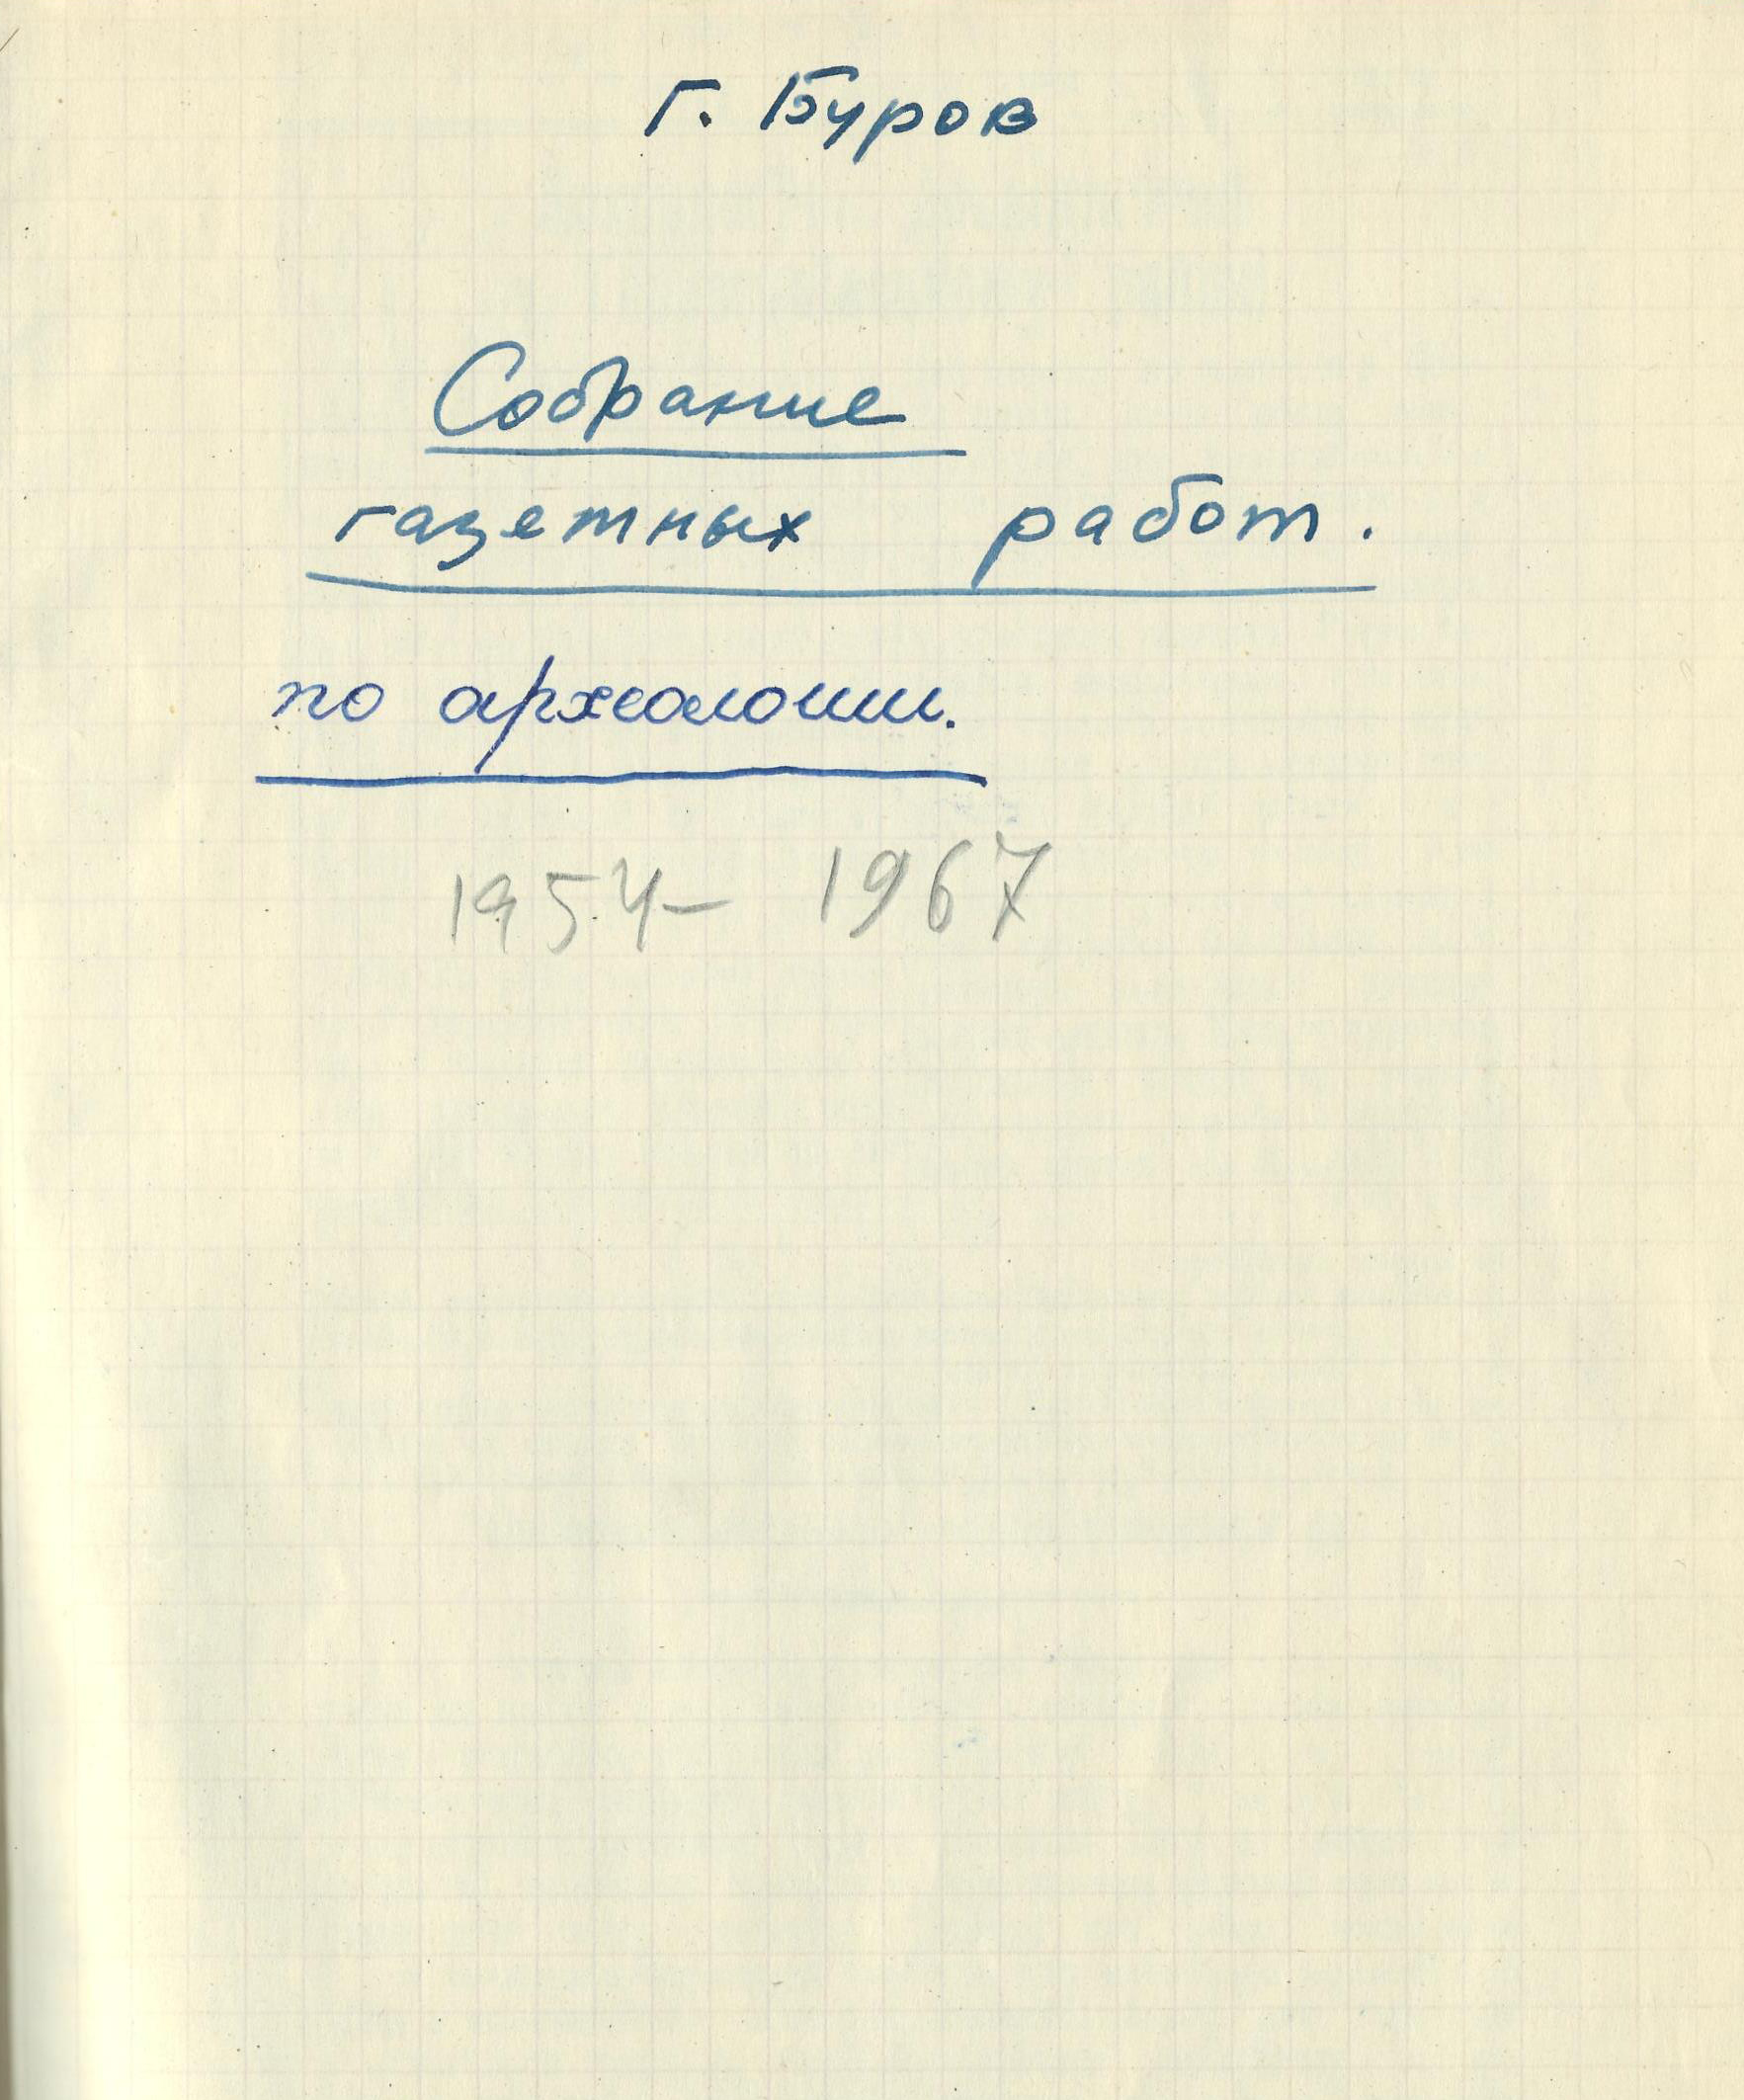 Г. Буров
Собрание
газетных работ.
по археологии.
1954- 1967